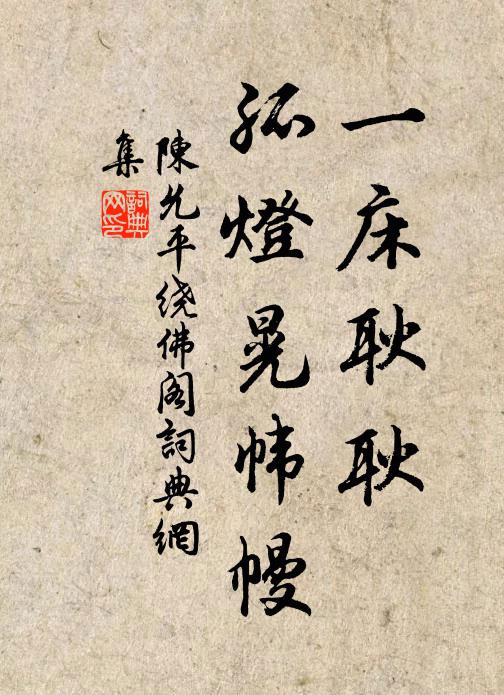 一床耿耿
孤燈晃帏幔
陳允平绕佛阁詞典網
集
詞典
网印